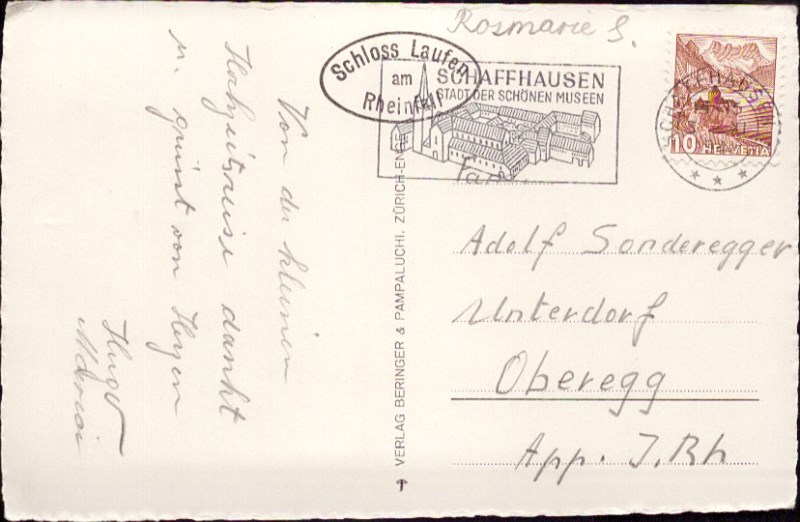 Rosmarie S.
Schloss Laufen
am
Rheinfall
SCHAFFHAUSEN
STADT DER SCHÖNEN MUSEEN
10 HELVETIA
Fam.
Adolf Sonderegger
Unterdorf
Oberegg
App. I. Rh
VERLAG BERINGER & PAMPALUCHI, ZÜRICH-ENGE
Von der kleinen
Hochzeitsreise dankt
u. grüsst von Herzen
Hugo